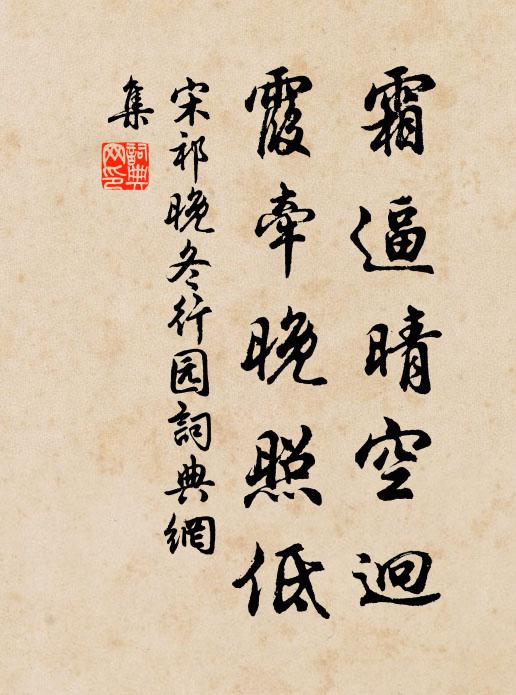 霜逼晴空迥
霞牽晚照低
宋祁晚冬行园詞典網
集
詞典网印